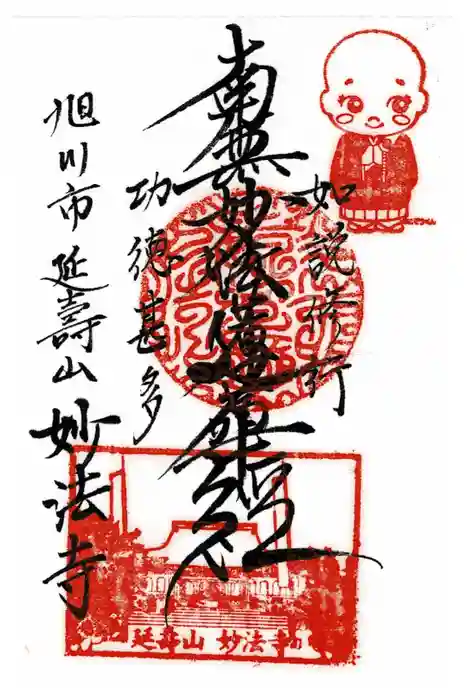 如説修行
南無妙法蓮華経
功徳甚多
旭川市 延壽山
妙法寺
延壽山 妙法寺